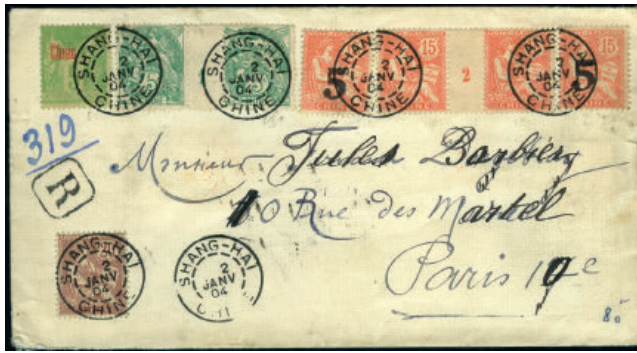 Chine
SHANG-HAI 2 JANV 04 CHINE
SHANG-HAI 2 JANV 04 CHINE
SHANG-HAI 2 JANV 04 CHINE
SHANG-HAI 2 JANV 04 CHINE
5 15 15 2 15 5
319
R
Monsieur Jules Barbier
10 Rue des Martel
Paris 10e
SHANG-HAI 2 JANV 04 CHINE
SHANG-HAI 2 JANV 04 CHINE
80